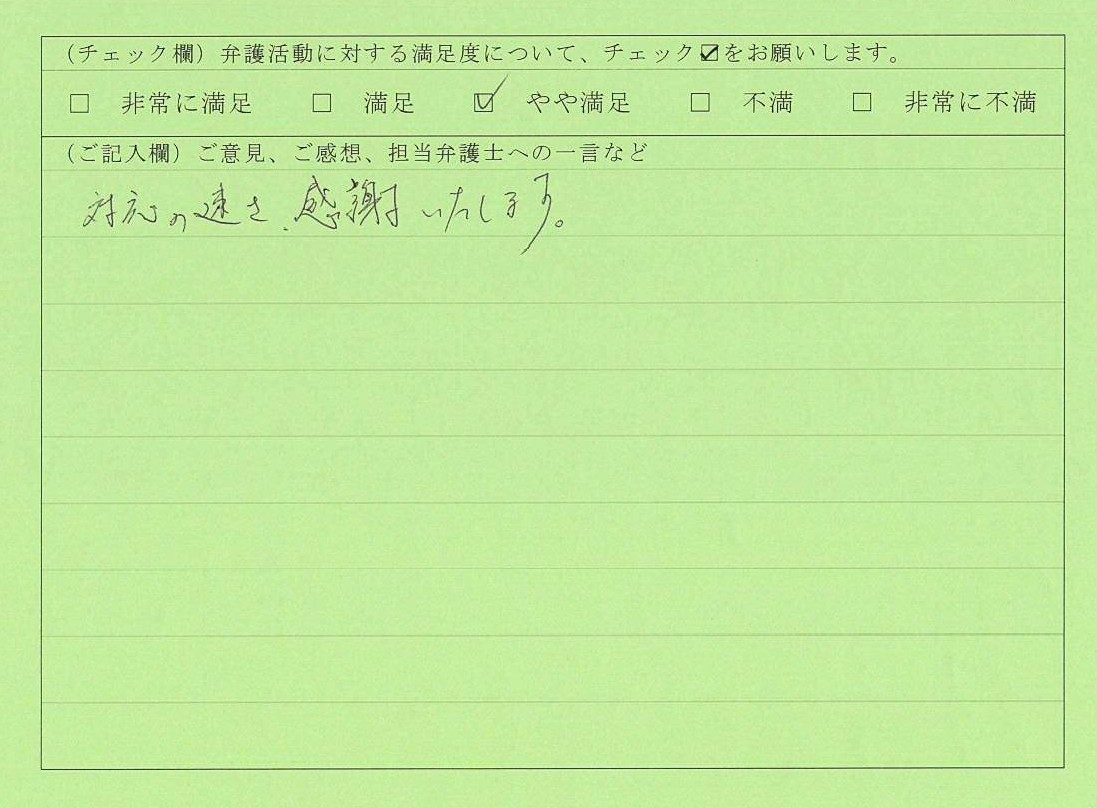 (チェック欄)弁護活動に対する満足度について、チェック☑をお願いします。
☐ 非常に満足 ☐ 満足 ☑ やや満足 ☐ 不満 ☐ 非常に不満
(ご記入欄)ご意見、ご感想、担当弁護士への一言など
対応の速さ、感謝いたします。